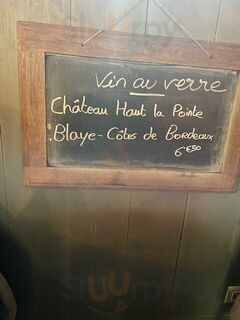 Vin au verre
Château Haut la Pointe
Blaye-Côtes de Bordeaux
6€50
Sluurpy